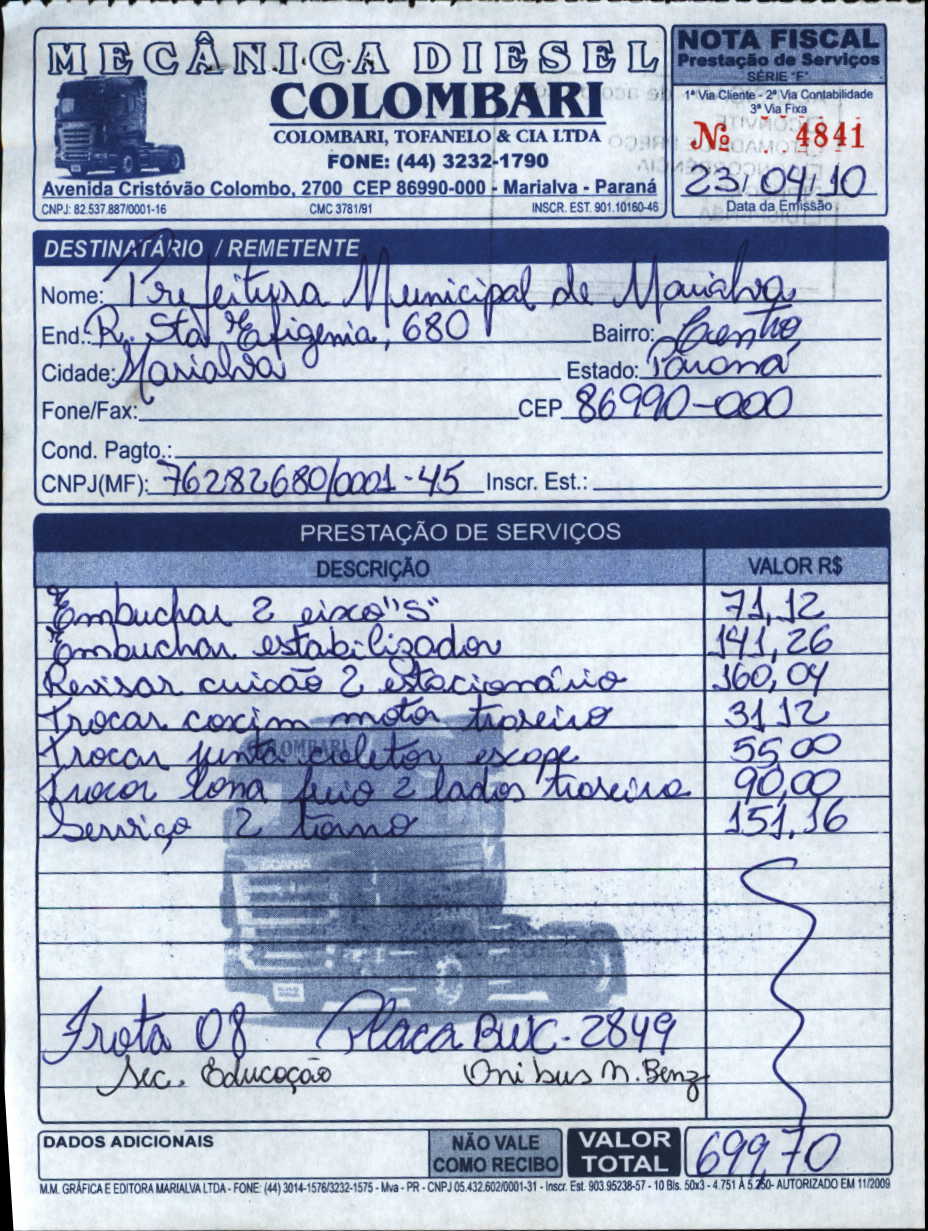 MECÂNICA DIESEL
COLOMBARI
COLOMBARI, TOFANELO & CIA LTDA
FONE: (44) 3232-1790
Avenida Cristóvão Colombo, 2700 CEP 86990-000 - Marialva - Paraná
CNPJ: 82.537.887/0001-16 CMC 3781/91 INSCR. EST. 901.10160-46
NOTA FISCAL
Prestação de Serviços
SÉRIE "F"
1ª Via Cliente - 2ª Via Contabilidade
3ª Via Fixa
Nº 4841
23/04/10
Data da Emissão
DESTINATÁRIO / REMETENTE
Nome: Prefeitura Municipal de Marialva
End.: R. Sta Efigenia, 680 Bairro: Centro
Cidade: Marialva Estado: Paraná
Fone/Fax: CEP 86990-000
Cond. Pagto.:
CNPJ(MF): 76282680/0001-45 Inscr. Est.:
PRESTAÇÃO DE SERVIÇOS
DESCRIÇÃO VALOR R$
Embuchar 2 eixo "S" 71,12
Embuchar estabilizador 141,26
Revisar cuicão 2 estacionário 160,04
Trocar coxim motor traseiro 31,12
Trocar junta coletor escape 55,00
Trocar lona freio 2 lados traseiro 90,00
Serviço 2 torno 151,16
COLOMBARI
SCANIA
Frota 08 Placa BWC-2849
Sec. Educação Onibus M. Benz
DADOS ADICIONAIS
NÃO VALE
COMO RECIBO
VALOR
TOTAL
699,70
M.M. GRÁFICA E EDITORA MARIALVA LTDA - FONE: (44) 3014-1576/3232-1575 - Mva - PR - CNPJ 05.432.602/0001-31 - Inscr. Est. 903.95238-57 - 10 Bls. 50x3 - 4.751 À 5.250- AUTORIZADO EM 11/2009